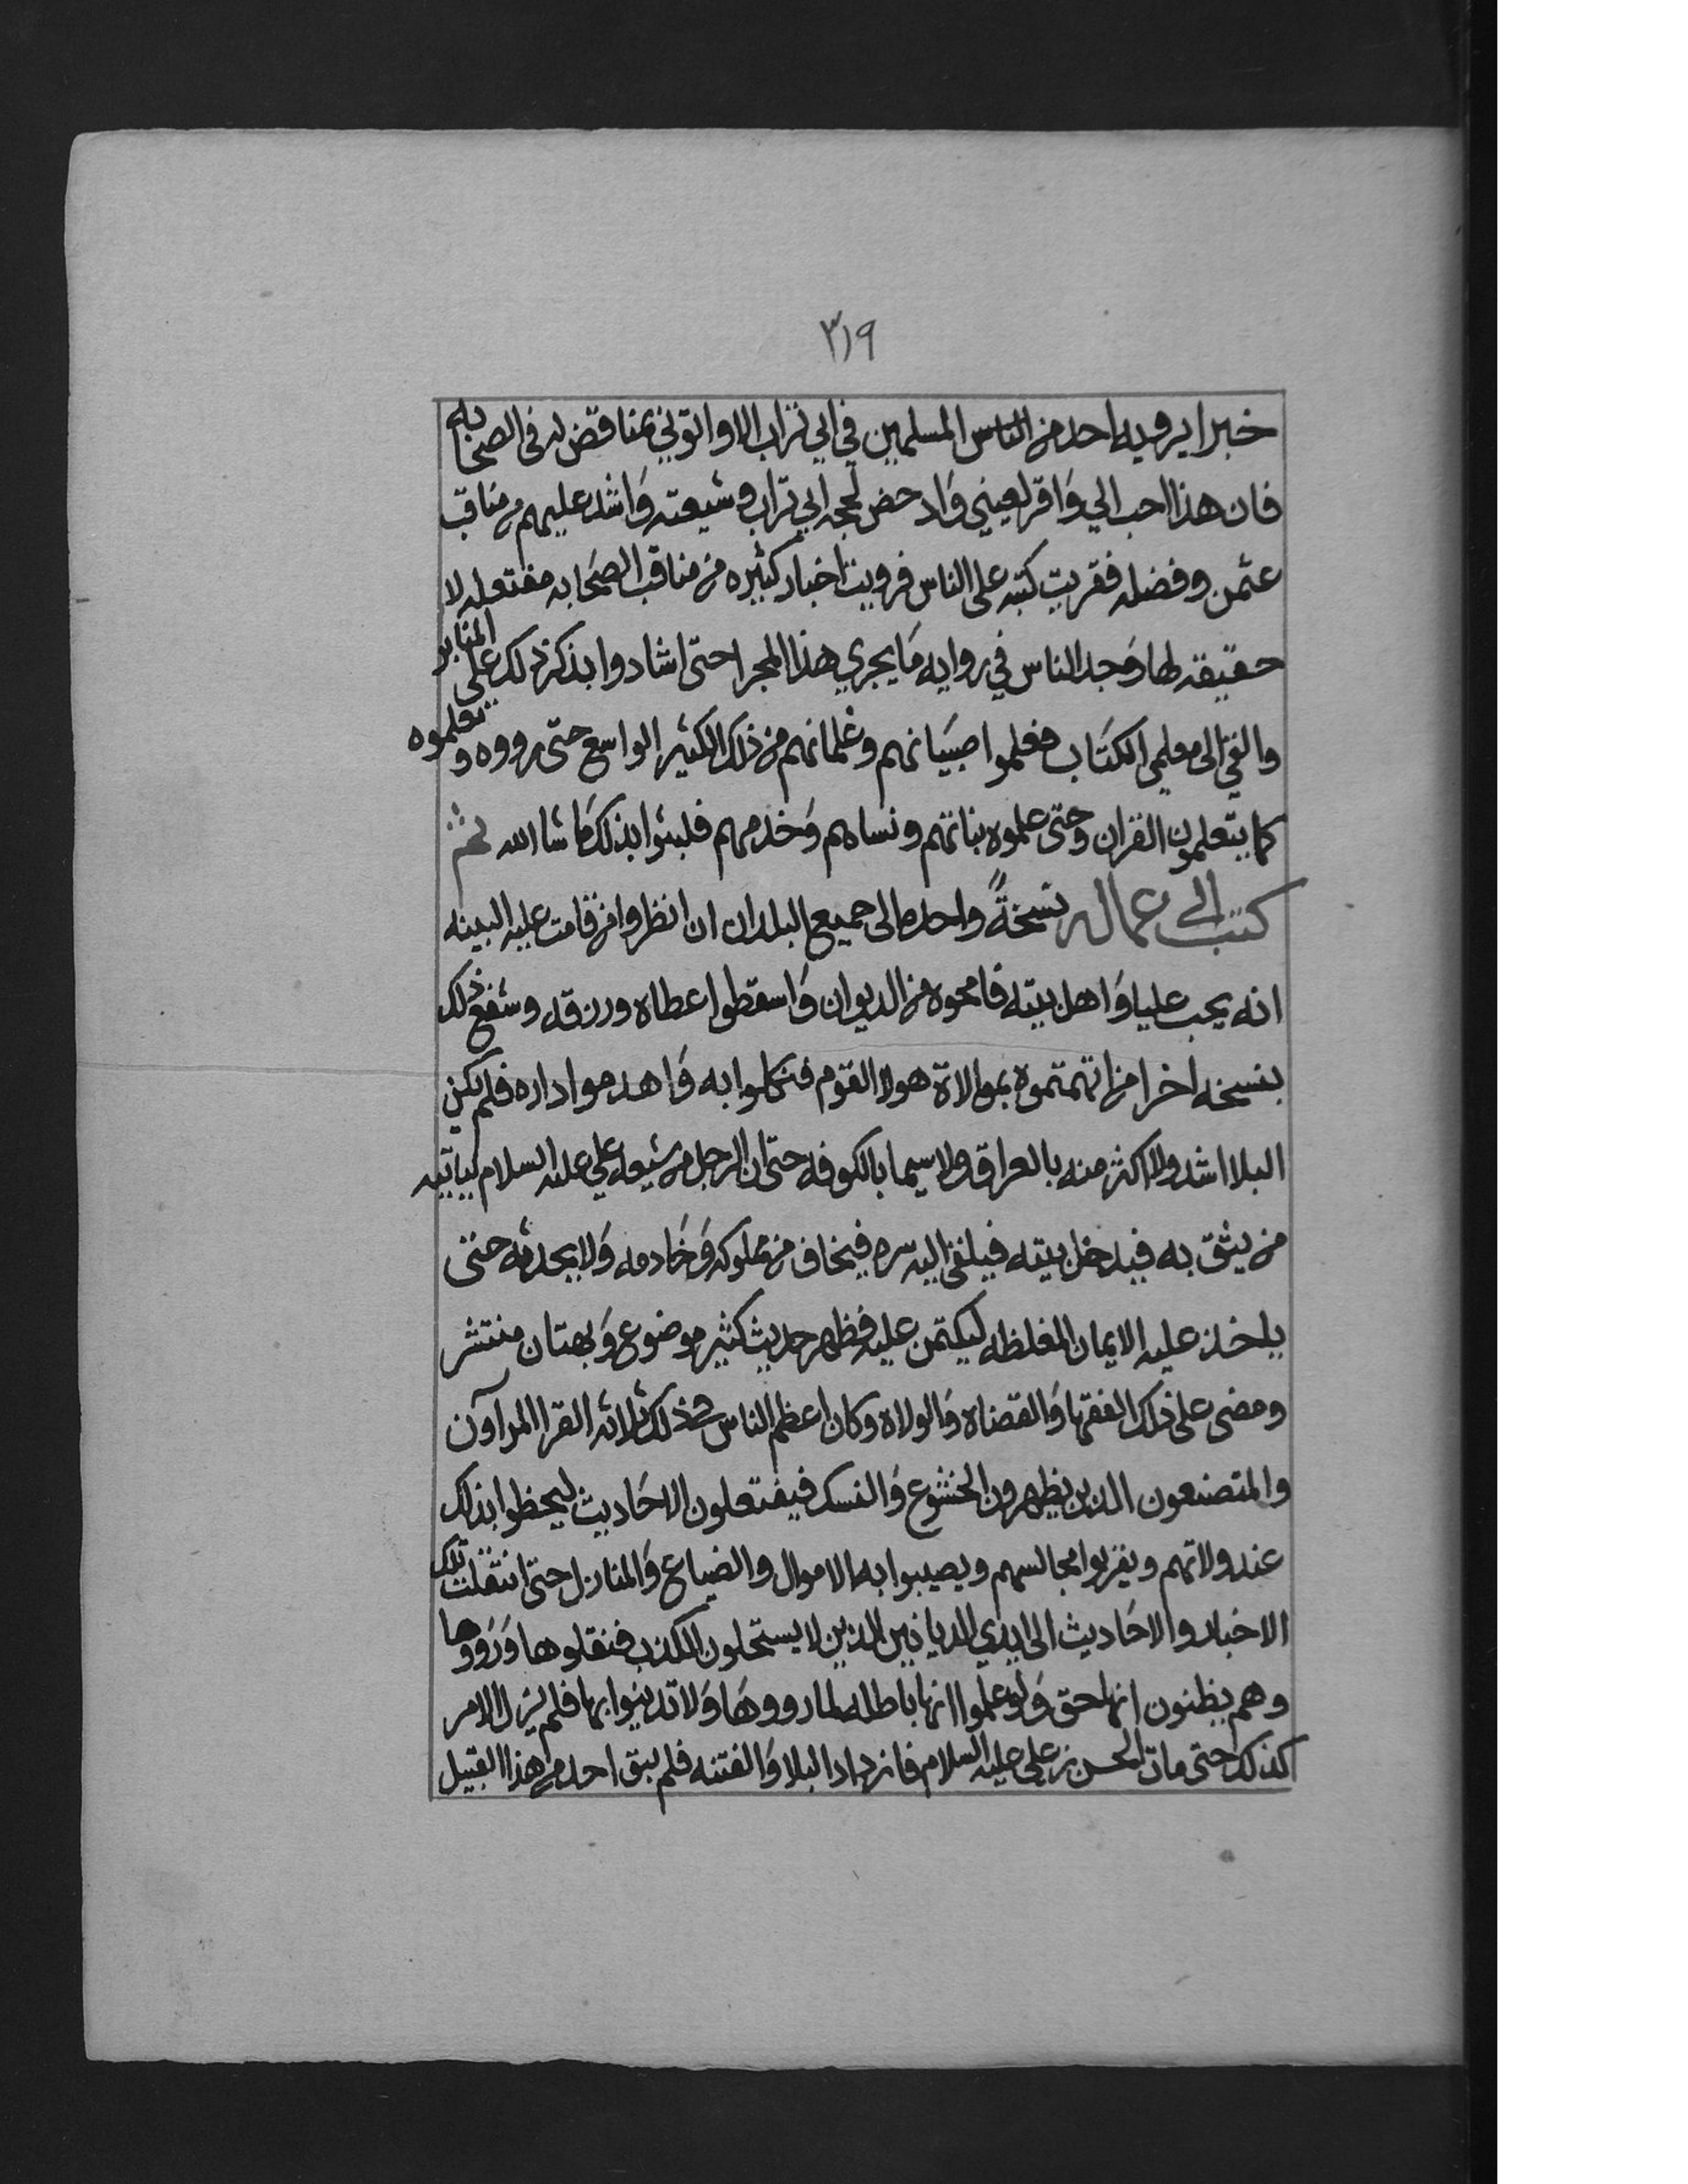 ٣١٩
خبرا يرويه احد من الناس المسلمين في ابي تراب الا واتوني بمناقض له في الصحابه
فان هذا احب الي وَاقر لعيني وَادحض لحجه ابي تراب وشيعته وَاشد عليهم من مناقب
عثمن وفضله فقريت كتبه على الناس فرويت اخبار كثيره من مناقب الصحَابه مفتعله لا
حقيقه لها وَجد الناس في روايه مَا يجري هذا المجرا حتى اشادوا بذكر ذلك على المنابر
والقي الى معلمي الكتَاب فعلموا صبيَانهم وغلمانهم من ذلك الكثير الواسع حتى رووه وتعلموه
كما يتعلمون القران وحتى علموه بناتهم ونساهم وَخدمهم فلبثوا بذلك مَا شا الله ثم
كتب الى عماله نسخةً واحده الى جميع البلدان ان انظروا من قامت عليه البينه
انه يحب عليا وَاهل بيته فامحوه من الديوان وَاسقطوا عطاه ورزقه وشفع ذلك
بنسخه اخرا من اتهمتموه بموالاة هولا القوم فنكلوا به وَاهدموا داره فلم يكن
البلا اشد ولا اكثر منه بالعراق ولا سيما بالكوفه حتى ان الرجل من شيعه علي عليه السلام لياتيه
من يثق به فيدخل بيته فيلقي اليه سره فيخاف من مملوكه وَخَادمه وَلا يحدثه حتى
ياخذ عليه الايمان المغلظه ليكتمن عليه فظهر حديث كثير موضوع وَبهتان منتشر
ومضى على ذلك الفقها وَالقضاه وَالولاه وكان اعظم الناس في ذلك ثلاثه القرا المراآون
والمتصنعون الذين يظهرون الخشوع وَالنسك فيفتعلون الاحَاديث ليحظوا بذلك
عند ولاتهم ويقربوا مجالسهم ويصيبوا به الاموال والضياع وَالمنازل حتى انتقلت تلك
الاخبار والاحَاديث الى ايدي الديانين الذين لا يستحلون الكذب فنقلوها وَرَووها
وهم يظنون انها حق وَلو علموا انها باطله لما رووهَا وَلا تدينوا بها فلم يزل الامر
كذلك حتى مات الحسن بن علي عليه السلام فازداد البلا وَالفتنه فلم يبق احد من هذا القبيل